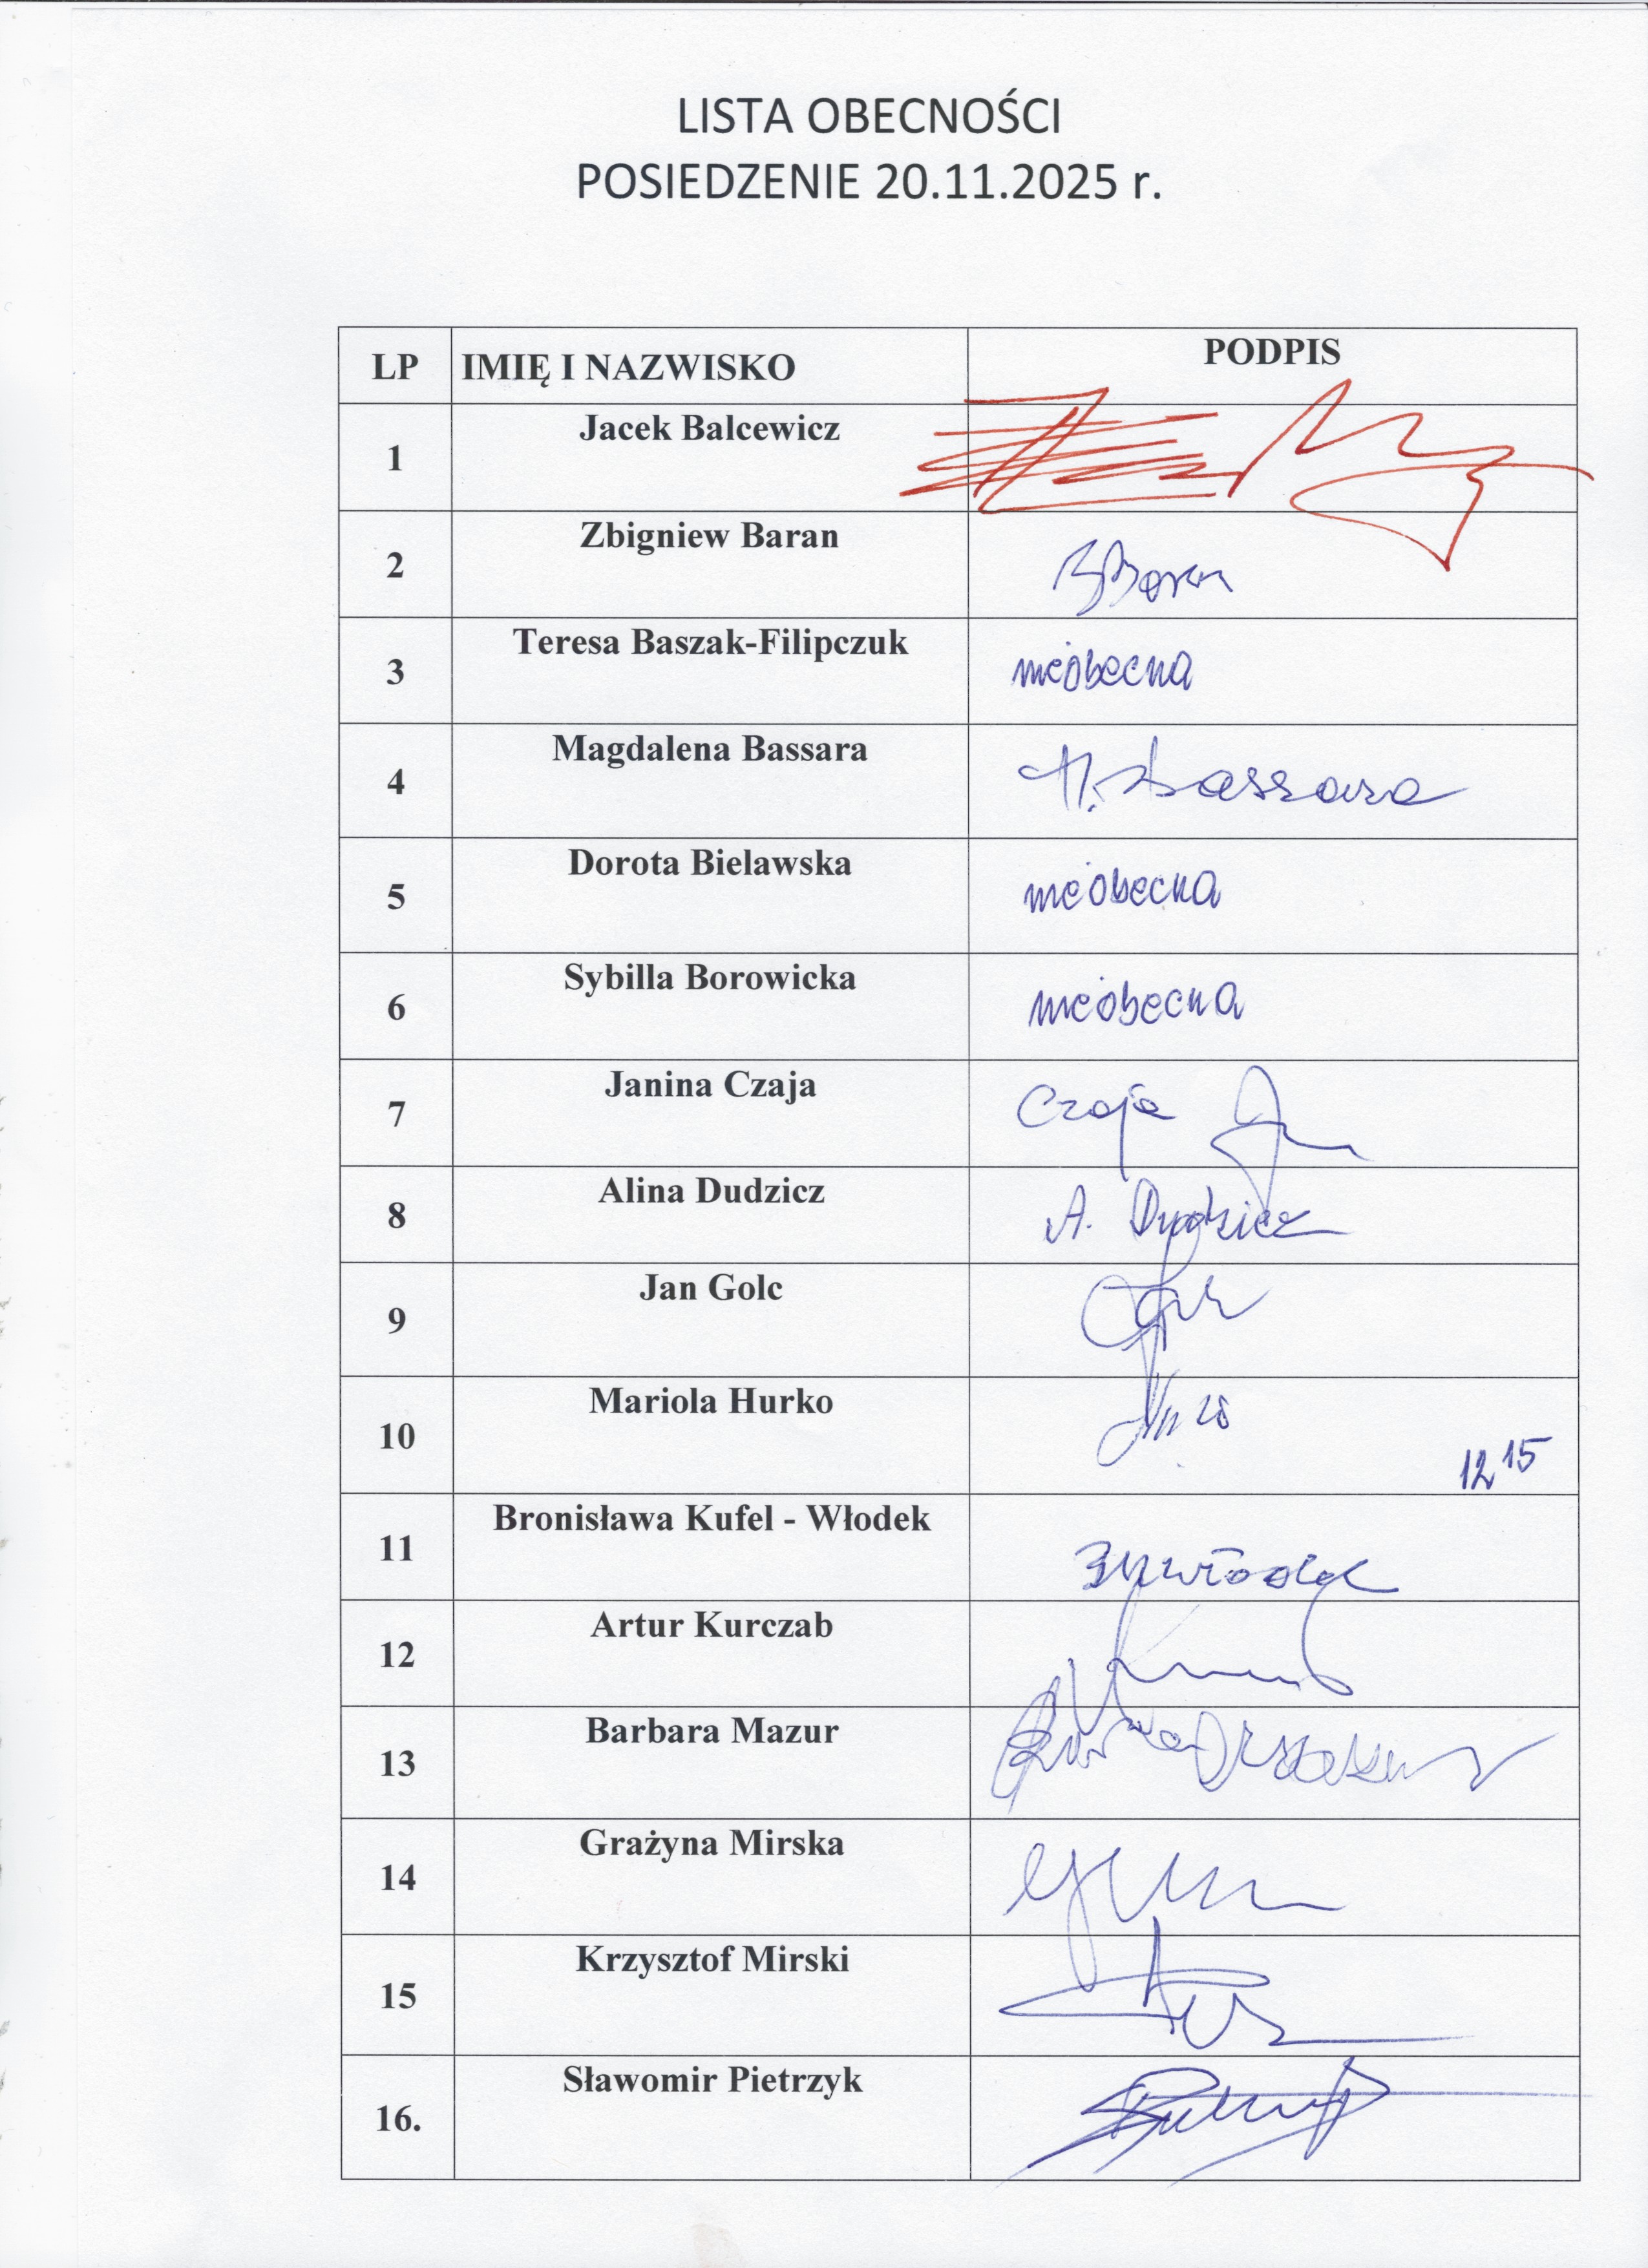 LISTA OBECNOŚCI
POSIEDZENIE 20.11.2025 r.
LP IMIĘ I NAZWISKO PODPIS
1 Jacek Balcewicz
2 Zbigniew Baran ZBaran
3 Teresa Baszak-Filipczuk nieobecna
4 Magdalena Bassara M. Bassara
5 Dorota Bielawska nieobecna
6 Sybilla Borowicka nieobecna
7 Janina Czaja Czaja
8 Alina Dudzicz A. Dudzicz
9 Jan Golc
10 Mariola Hurko 12 15
11 Bronisława Kufel - Włodek
12 Artur Kurczab
13 Barbara Mazur
14 Grażyna Mirska
15 Krzysztof Mirski
16. Sławomir Pietrzyk